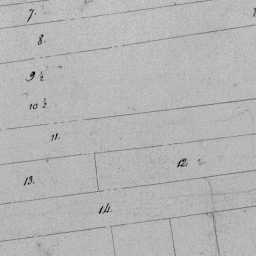 7.
8.
9 ½
10 ½
11.
12.
13.
14.